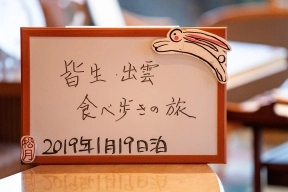 皆生・出雲
食べ歩きの旅
松月
2019年1月19日泊